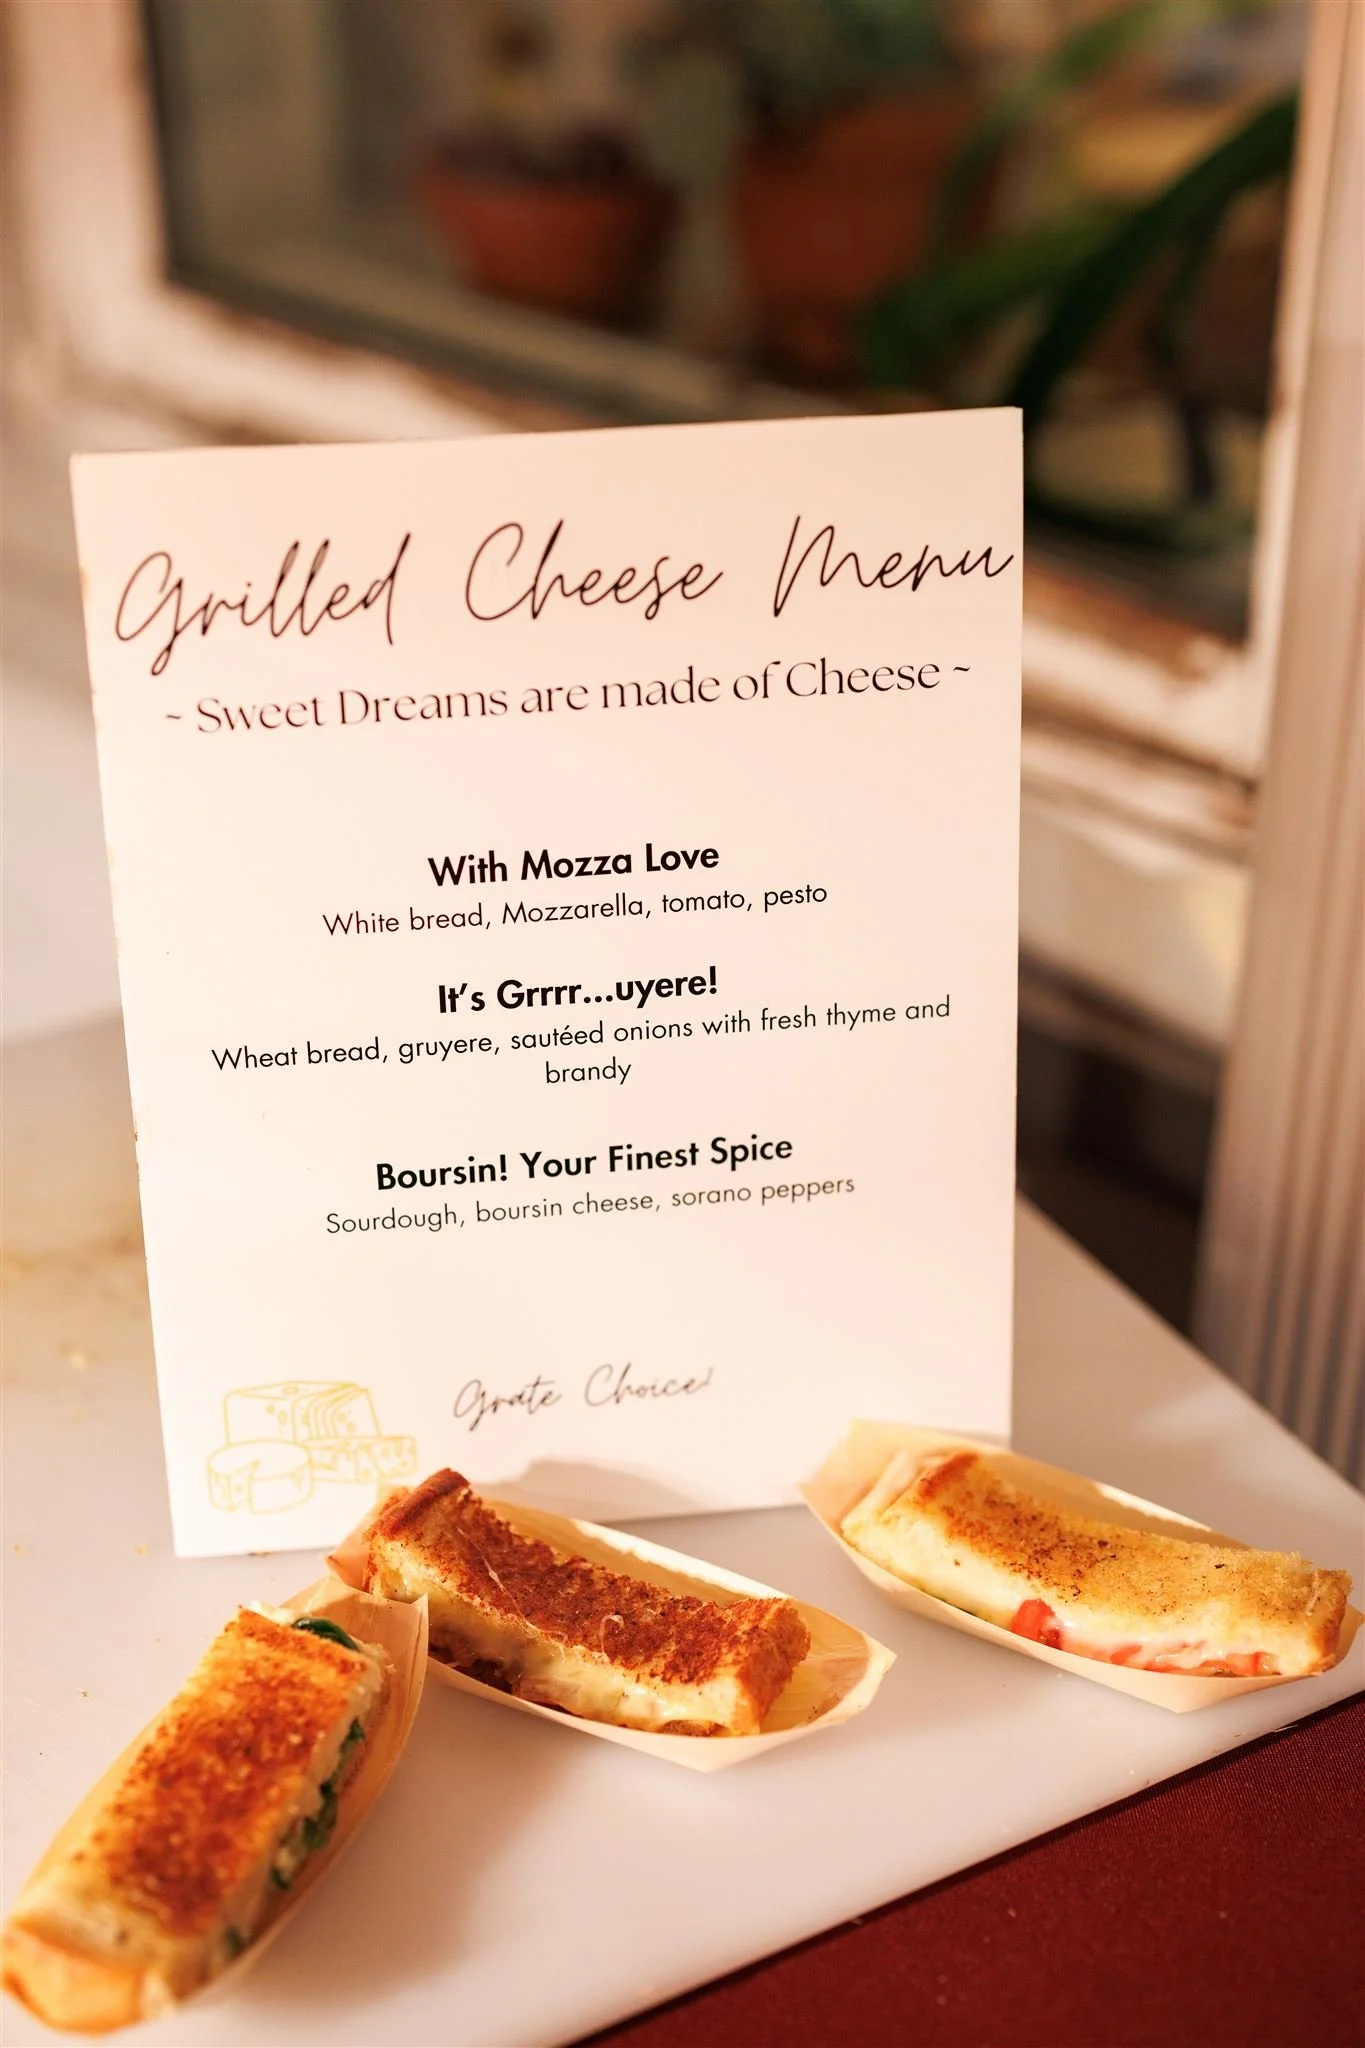 Grilled Cheese Menu
~ Sweet Dreams are made of Cheese ~
With Mozza Love
White bread, Mozzarella, tomato, pesto
It's Grrrr...uyere!
Wheat bread, gruyere, sautéed onions with fresh thyme and
brandy
Boursin! Your Finest Spice
Sourdough, boursin cheese, sorano peppers
Grate Choice!